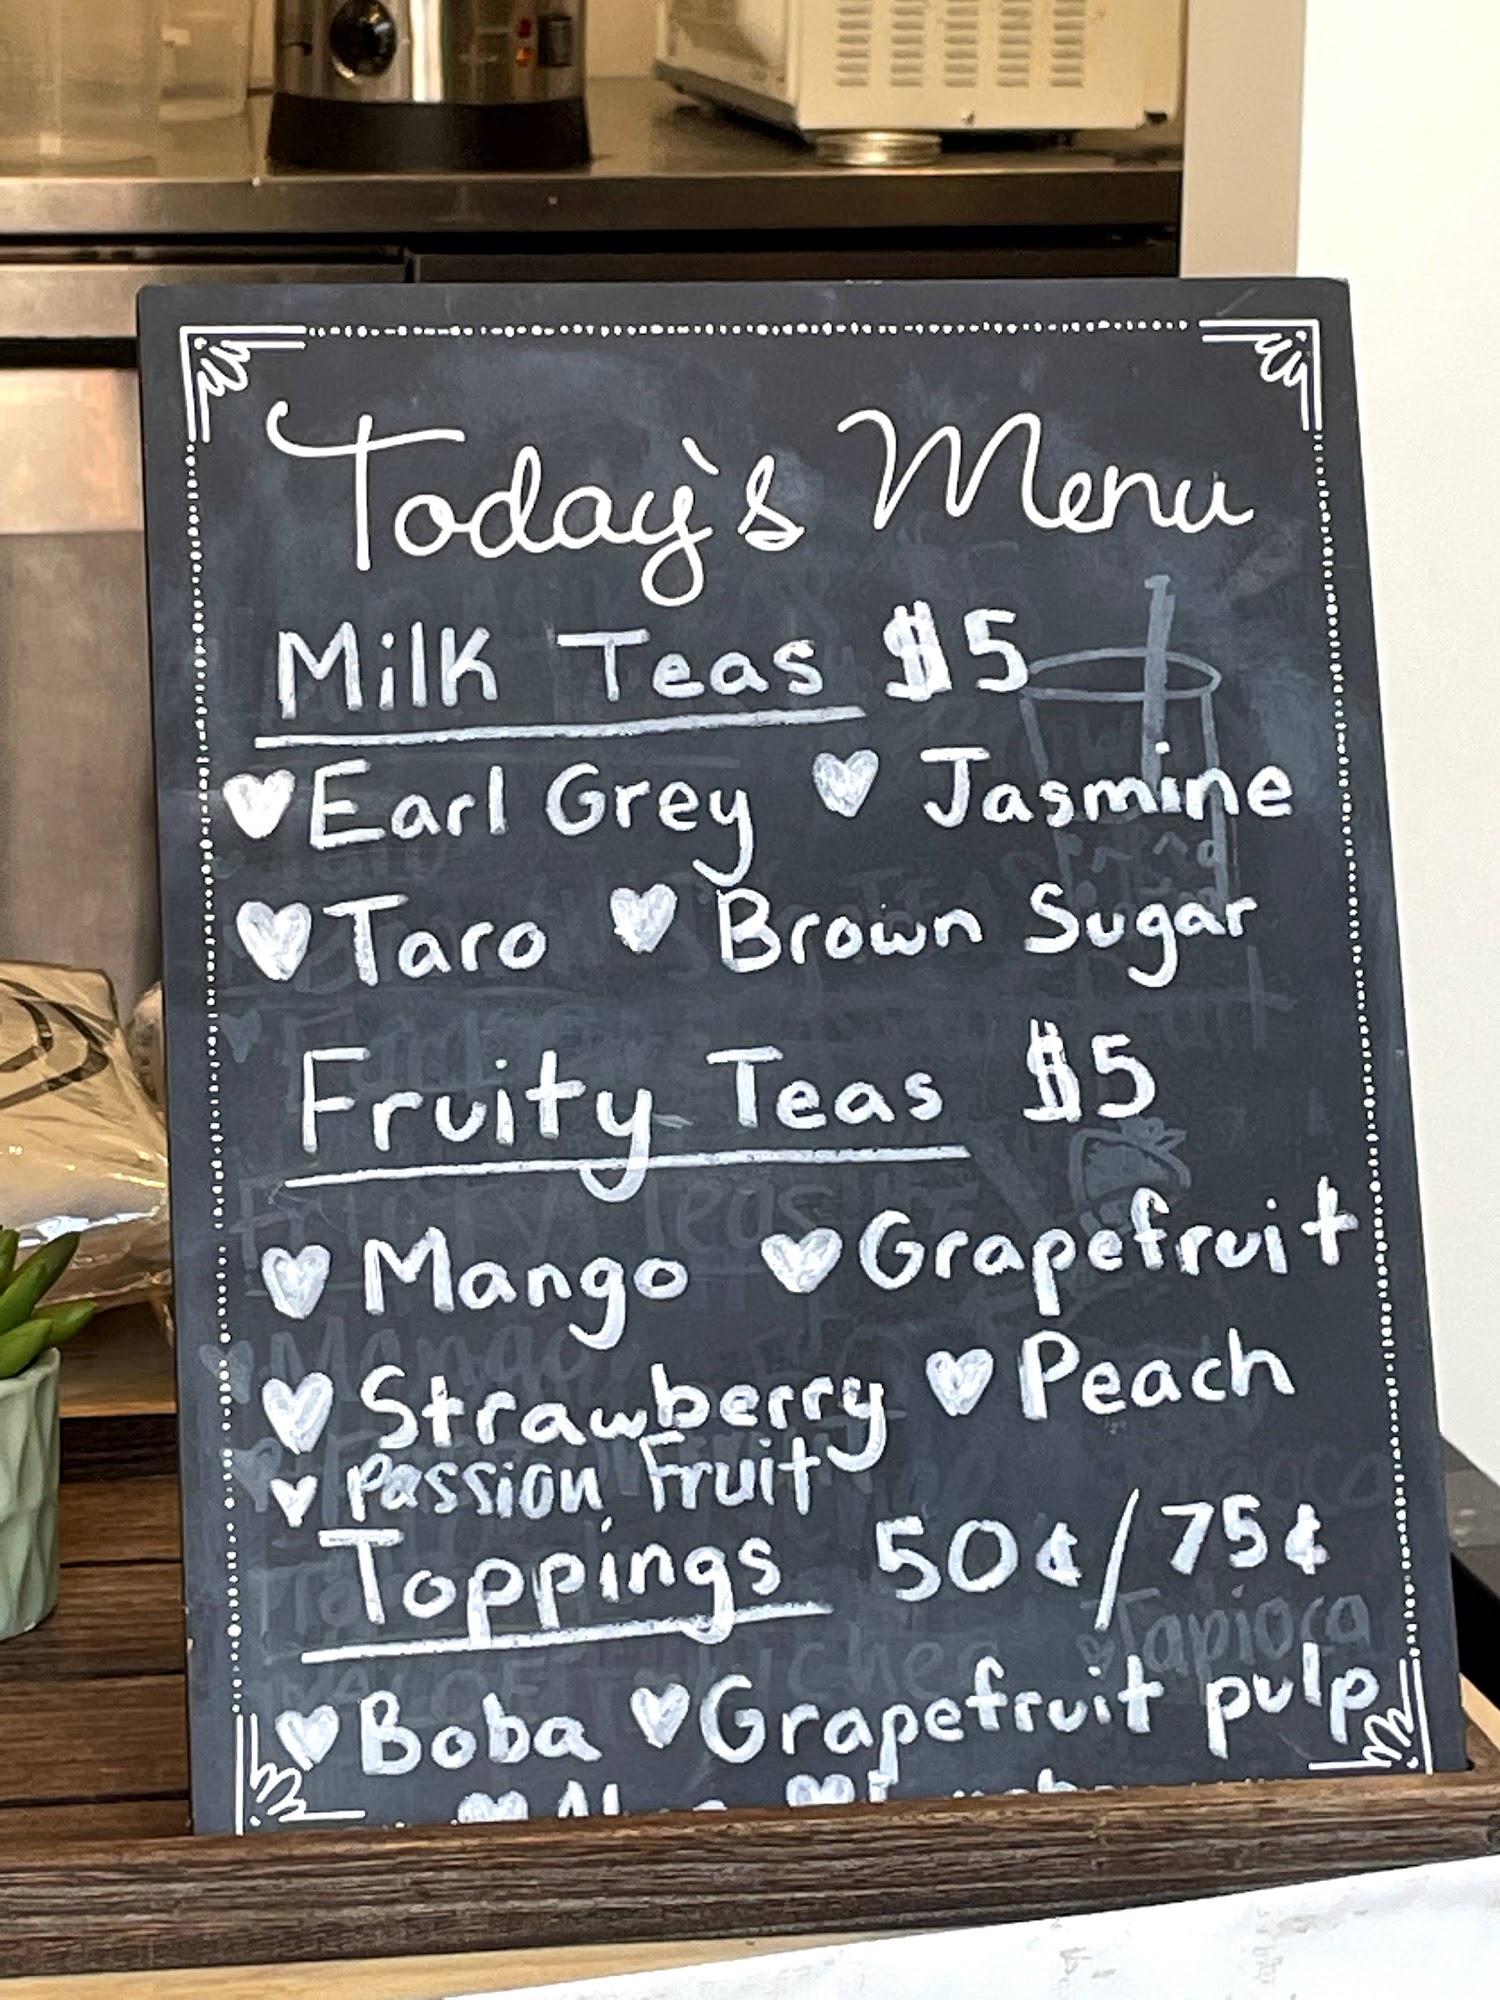 Today's Menu
Milk Teas $5
♥ Earl Grey ♥ Jasmine
♥ Taro ♥ Brown Sugar
Fruity Teas $5
♥ Mango ♥ Grapefruit
♥ Strawberry ♥ Peach
♥ Passion Fruit
Toppings 50¢/75¢
Tapioca
♥ Boba ♥ Grapefruit pulp